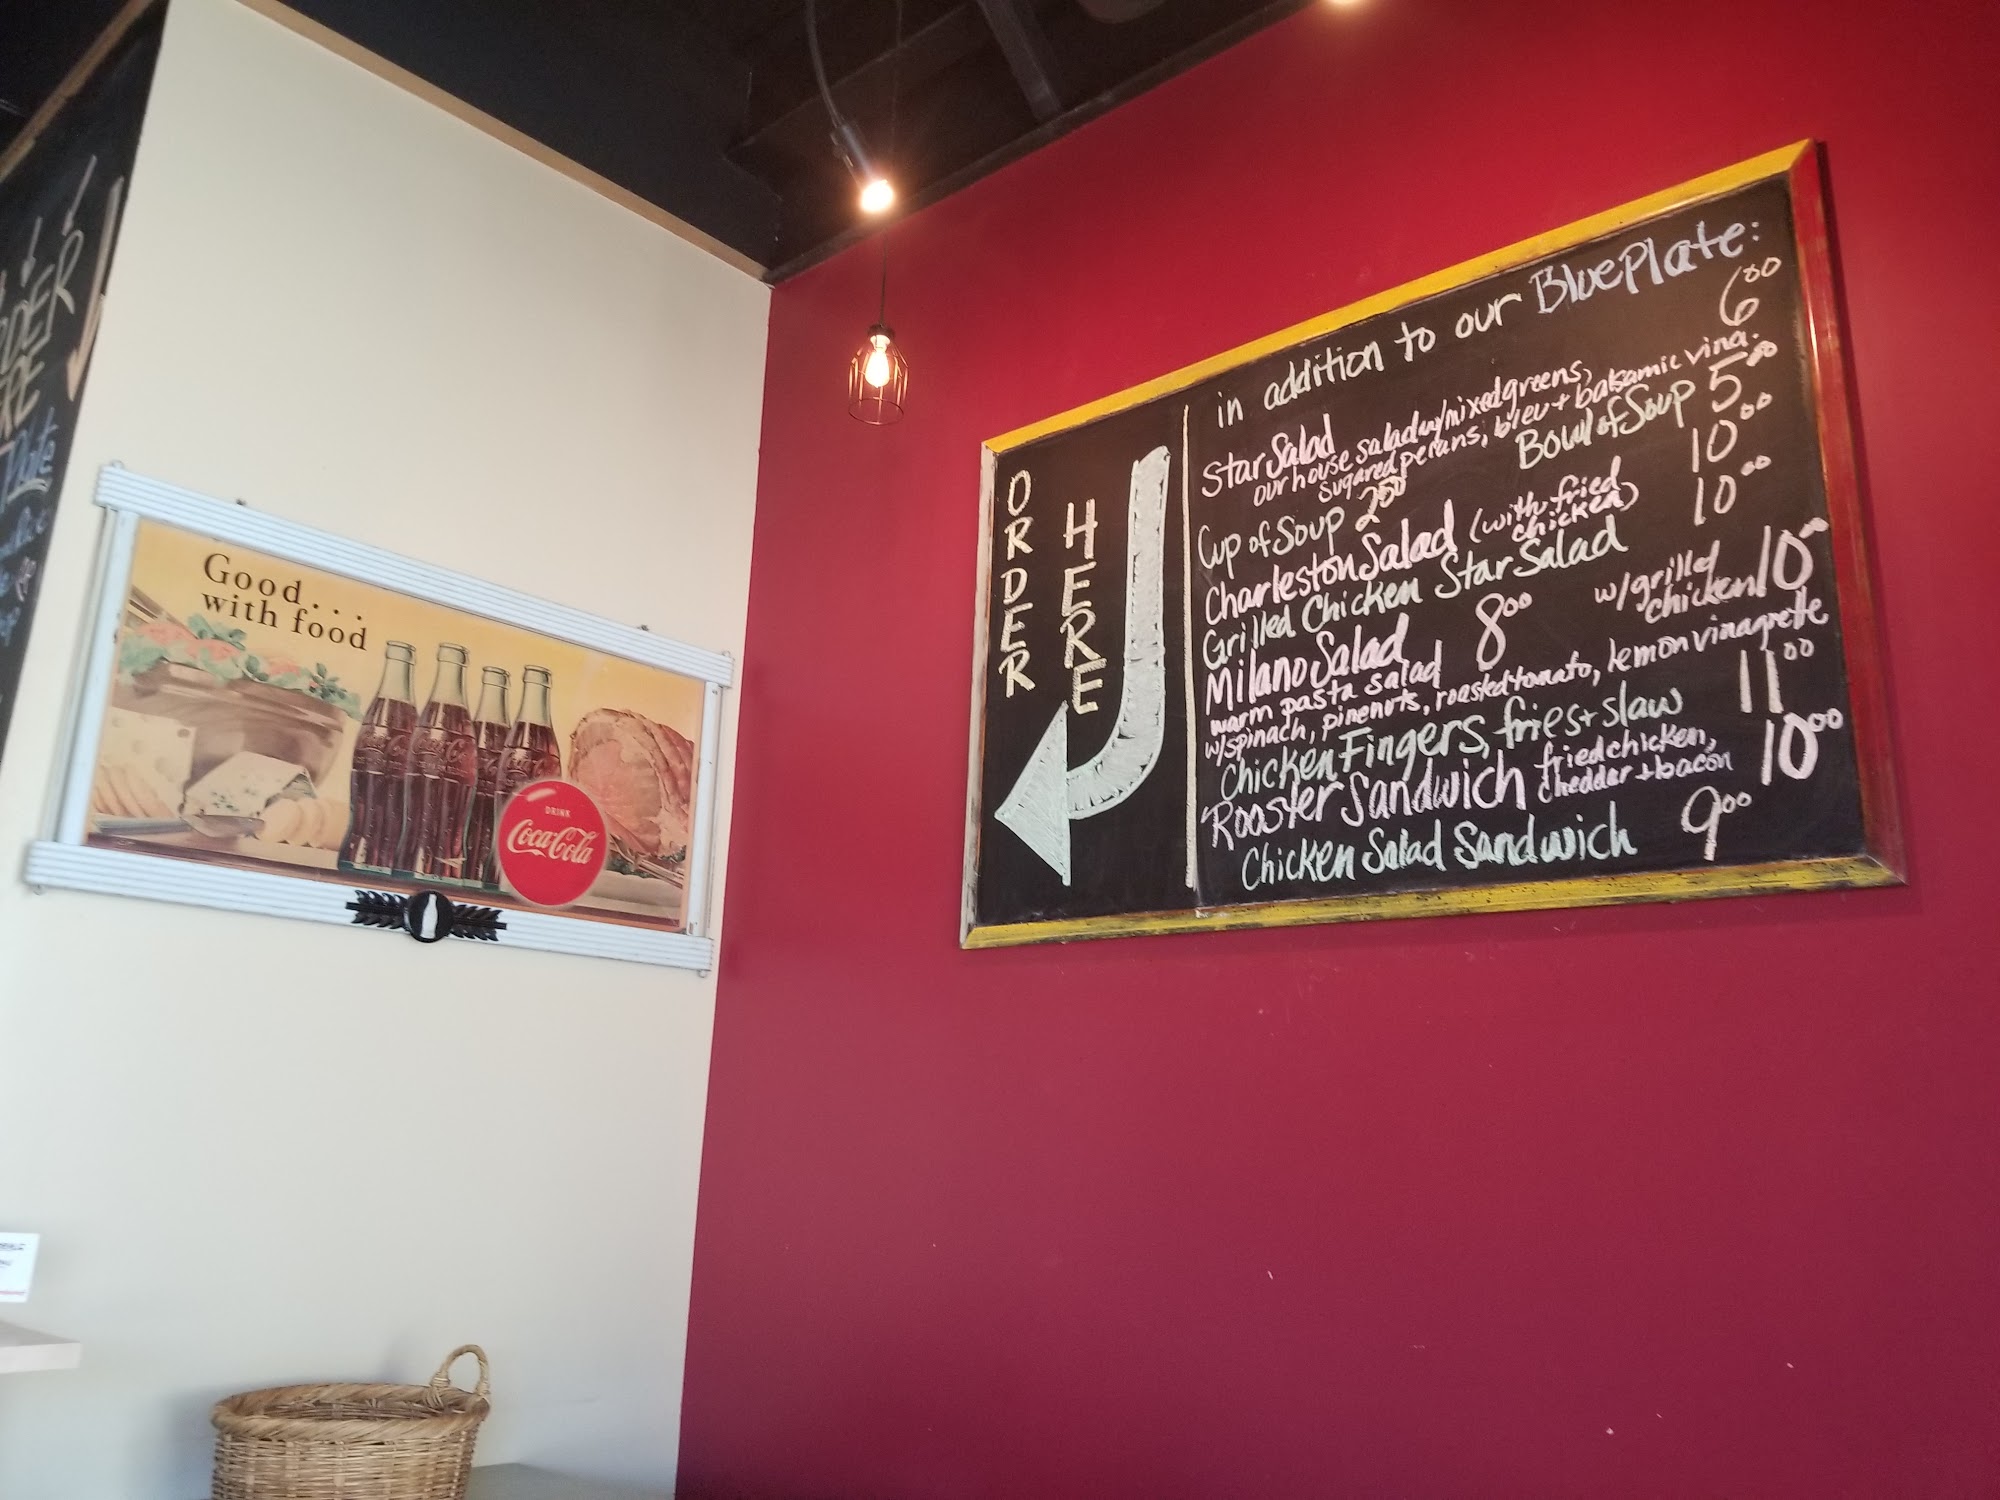 Good...
with food
DRINK
Coca-Cola
ORDER
HERE
in addition to our BluePlate:
Star Salad 6.00
our house salad w/mixed greens,
sugared pecans, bleu + balsamic vina.
Cup of Soup 2.00 Bowl of Soup 5.00
Charleston Salad (with fried chicken) 10.00
Grilled Chicken Star Salad 10.00
Milano Salad 8.00 w/grilled chicken 10.00
warm pasta salad
w/spinach, pinenuts, roasted tomato, lemon vinagrette
Chicken Fingers, fries + slaw 11.00
Rooster Sandwich fried chicken, cheddar + bacon 10.00
Chicken Salad Sandwich 9.00